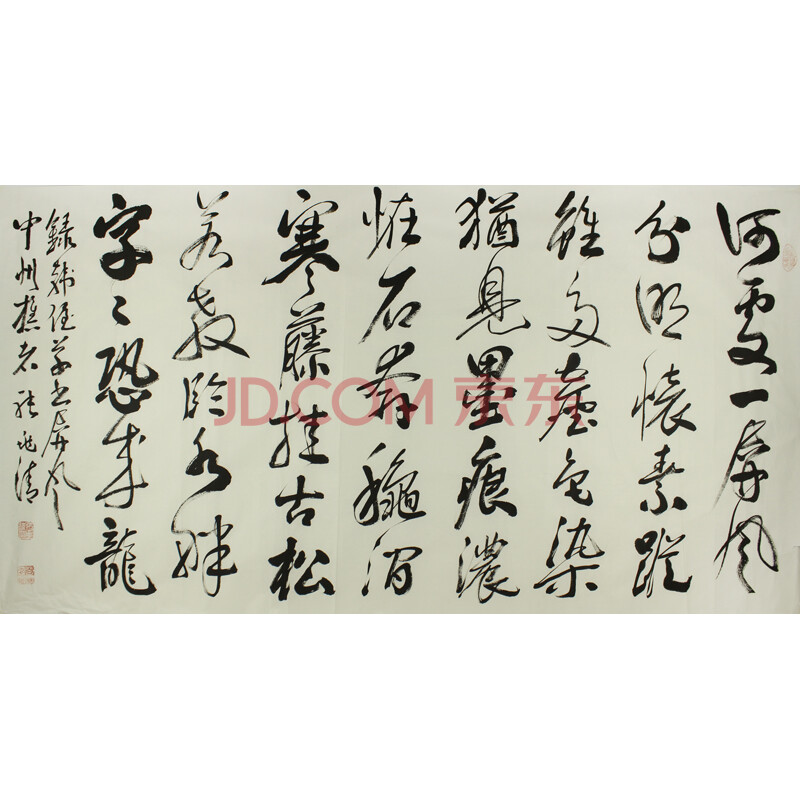 何處一屏風
分明懷素蹤
雖多塵色染
猶見墨痕濃
恠石奔龝澗
寒藤挂古松
若教臨水畔
字〻恐成龍
錄韓偓草書屏風
中州樵者張兆清
JD.COM 京东